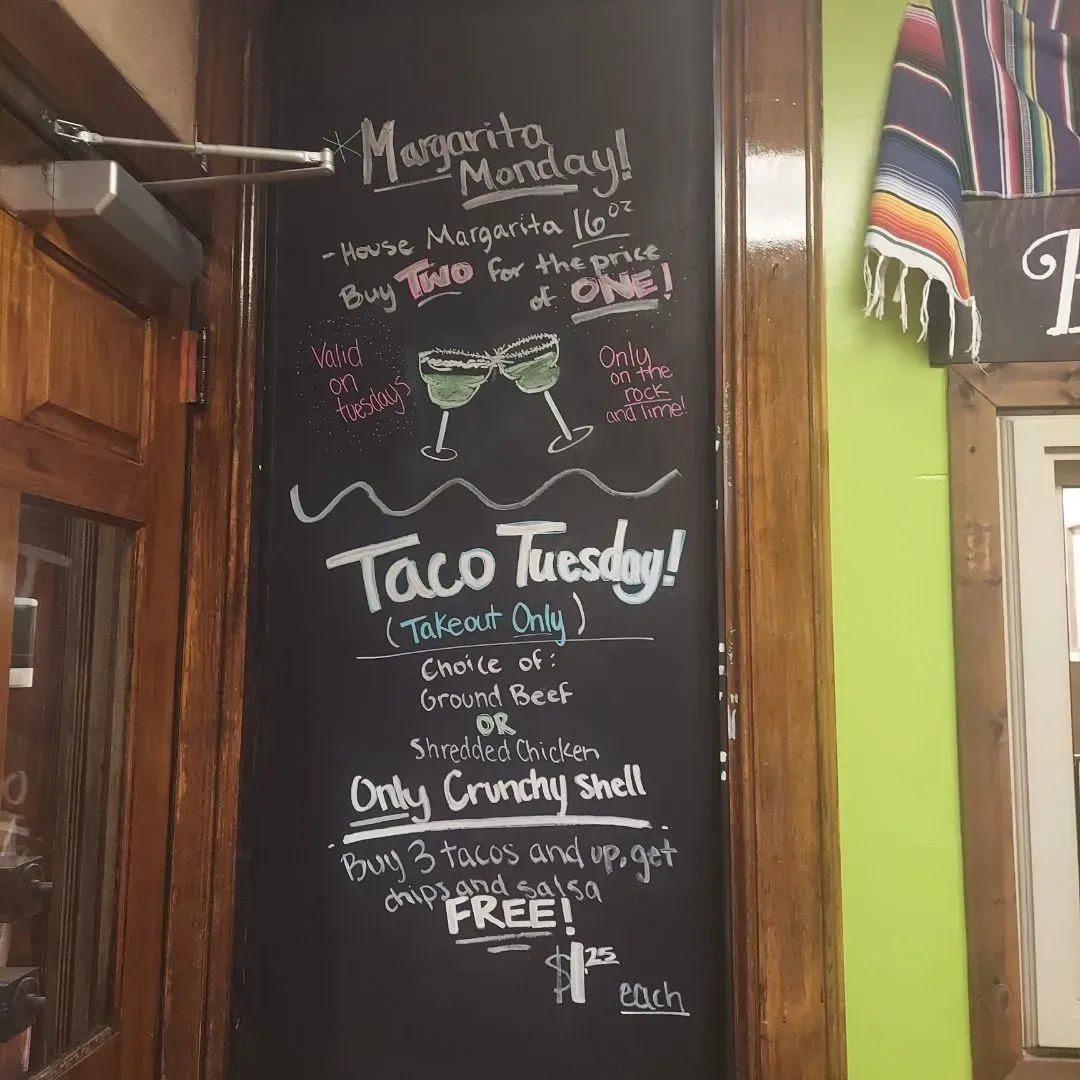 Margarita
Monday!
- House Margarita 16oz
Buy TWO for the price
of ONE!
Valid
on
tuesday's
Only
on the
rock
and lime!
Taco Tuesday!
(Takeout Only)
Choice of:
Ground Beef
OR
Shredded Chicken
Only Crunchy Shell
Buy 3 tacos and up, get
chips and salsa
FREE!
$1.25
each